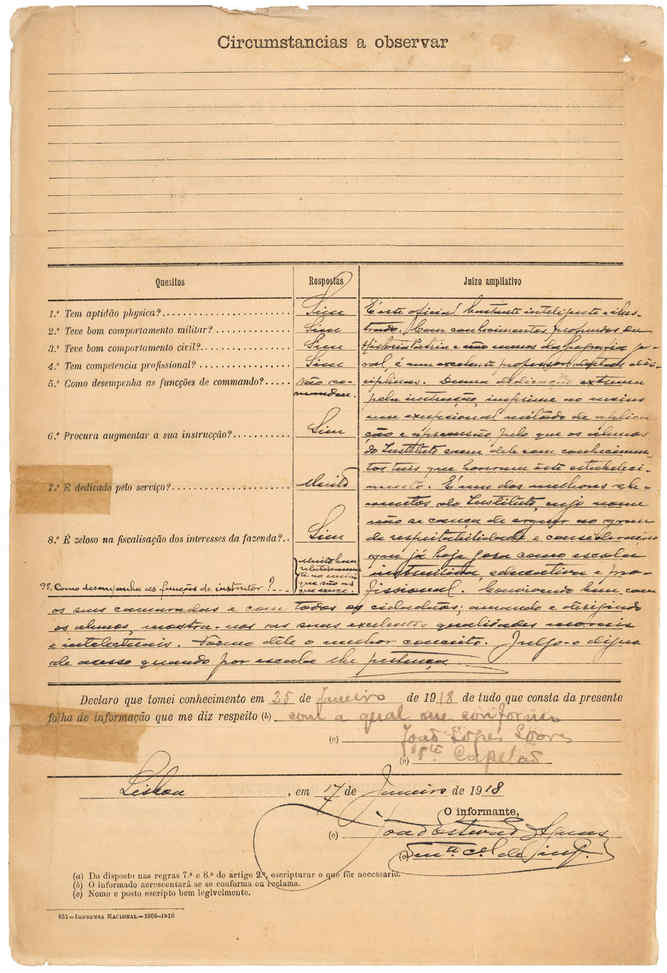 Circumstancias a observar
Quesitos
Respostas
Juizo ampliativo
1.ª Tem aptidão physica?
Sim
2.ª Teve bom comportamento militar?
Sim
3.ª Teve bom comportamento civil?
Sim
4.ª Tem competencia profissional?
Sim
5.ª Como desempenha as funcções de commando?
Não co-
mandou.
6.ª Procura augmentar a sua instrucção?
Sim
7.ª É dedicado pelo serviço?
Muito
8.ª É zeloso na fiscalisação dos interesses da fazenda?
Sim
9.ª Como desempenha as funções de instrutor?
Muito
É este oficial bastante inteligente e ilus-
trado. Com conhecimentos profundos em
e não menos de Geografia
ral, é um excelente professor
ciplinas. Duma dedicação extrema
pela instrução, imprime no ensino
um excepcional metodo de
ção e pelo que os alunos
do Instituto saem dele com conhecimen-
tos que honram este estabeleci-
mento. É um dos melhores ele-
mentos do Instituto, cujo nome
não se cança de erguer ao grau
de respeitabilidade e consideração
que já hoje goza como escola
educativa e pro-
fissional. Convivendo bem com
os seus camaradas e com todos os cidadãos; amando e dirigindo
os alunos, mostra-nos as suas excelentes qualidades moraes
e intelectuais. Formo dele o melhor conceito. Julgo-o digno
de acesso quando por escala lhe pertença
Declaro que tomei conhecimento em 25 de Janeiro de 1918 de tudo que consta da presente
folha de informação que me diz respeito (b) com a qual me conformo
(c) João Lopes Soares
(c) Capelão
Lisboa, em 17 de Janeiro de 1918
O informante,
(c)
(c)
(a) Do disposto nas regras 7.ª e 8.ª do artigo 2.º, escripturar o que fôr necessario.
(b) O informado acrescentará se se conforma ou reclama.
(c) Nome e posto escripto bem legivelmente.
651—Imprensa Nacional—1909-1910